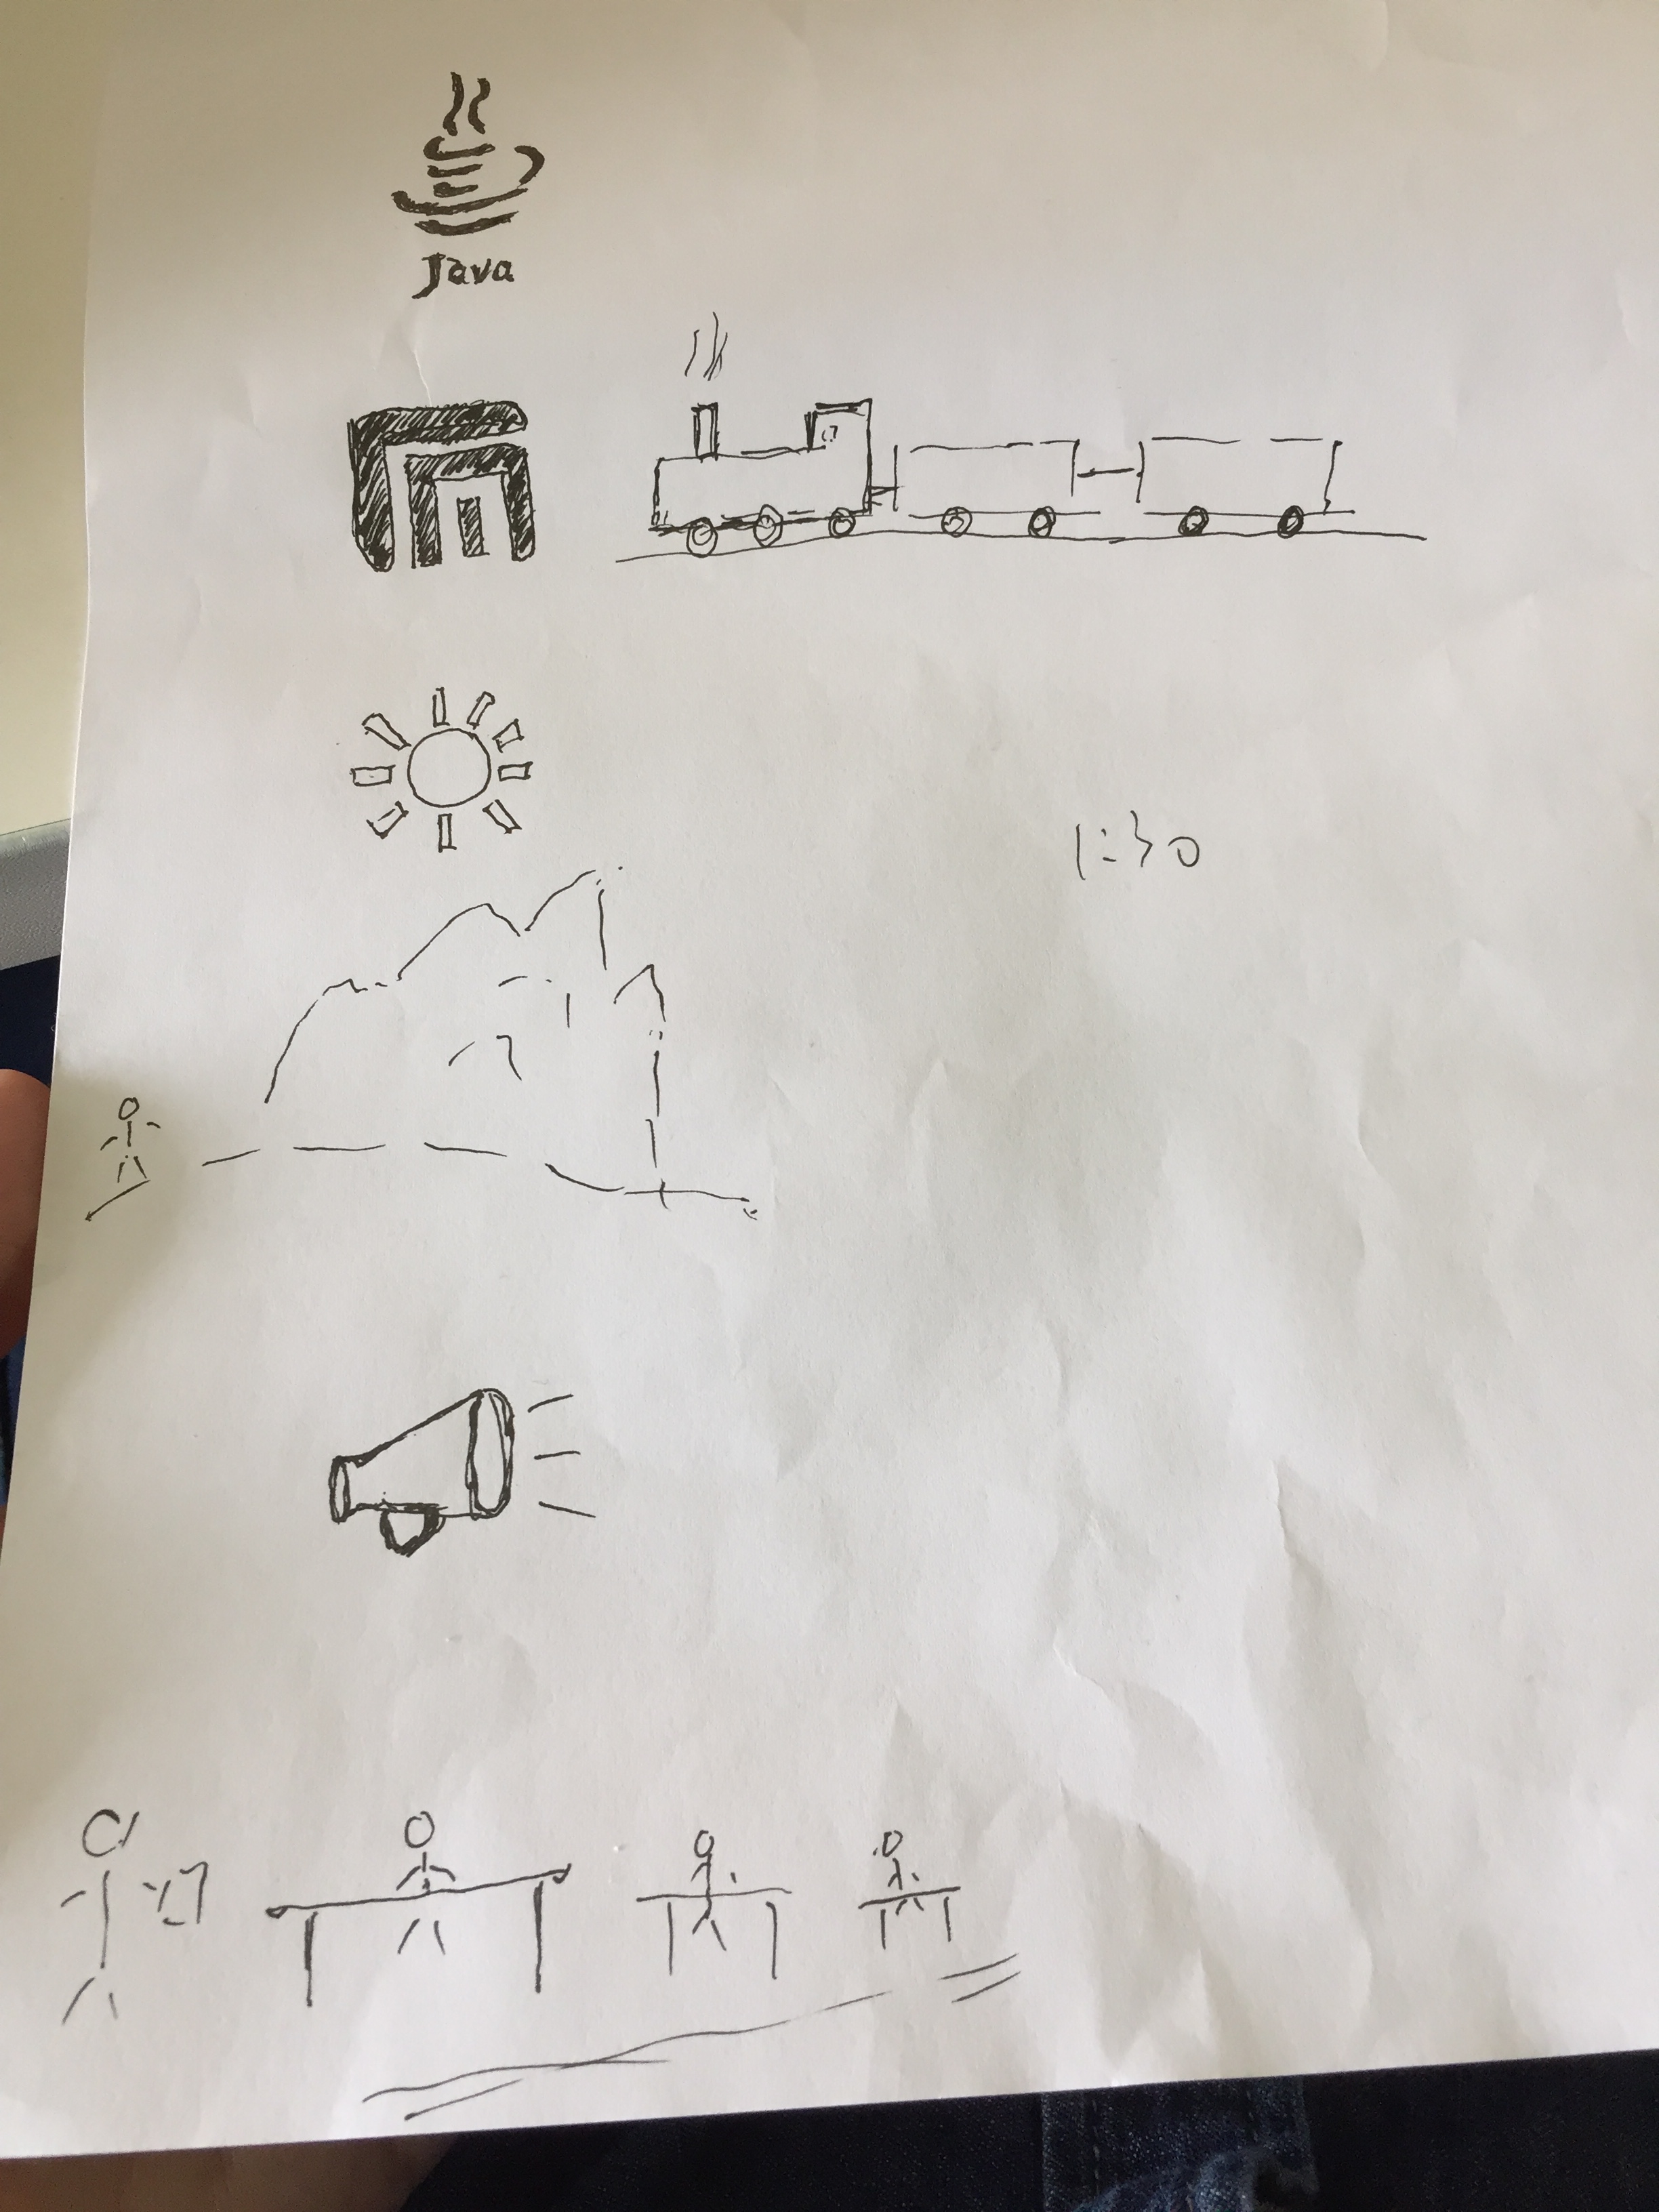 Java
1:30